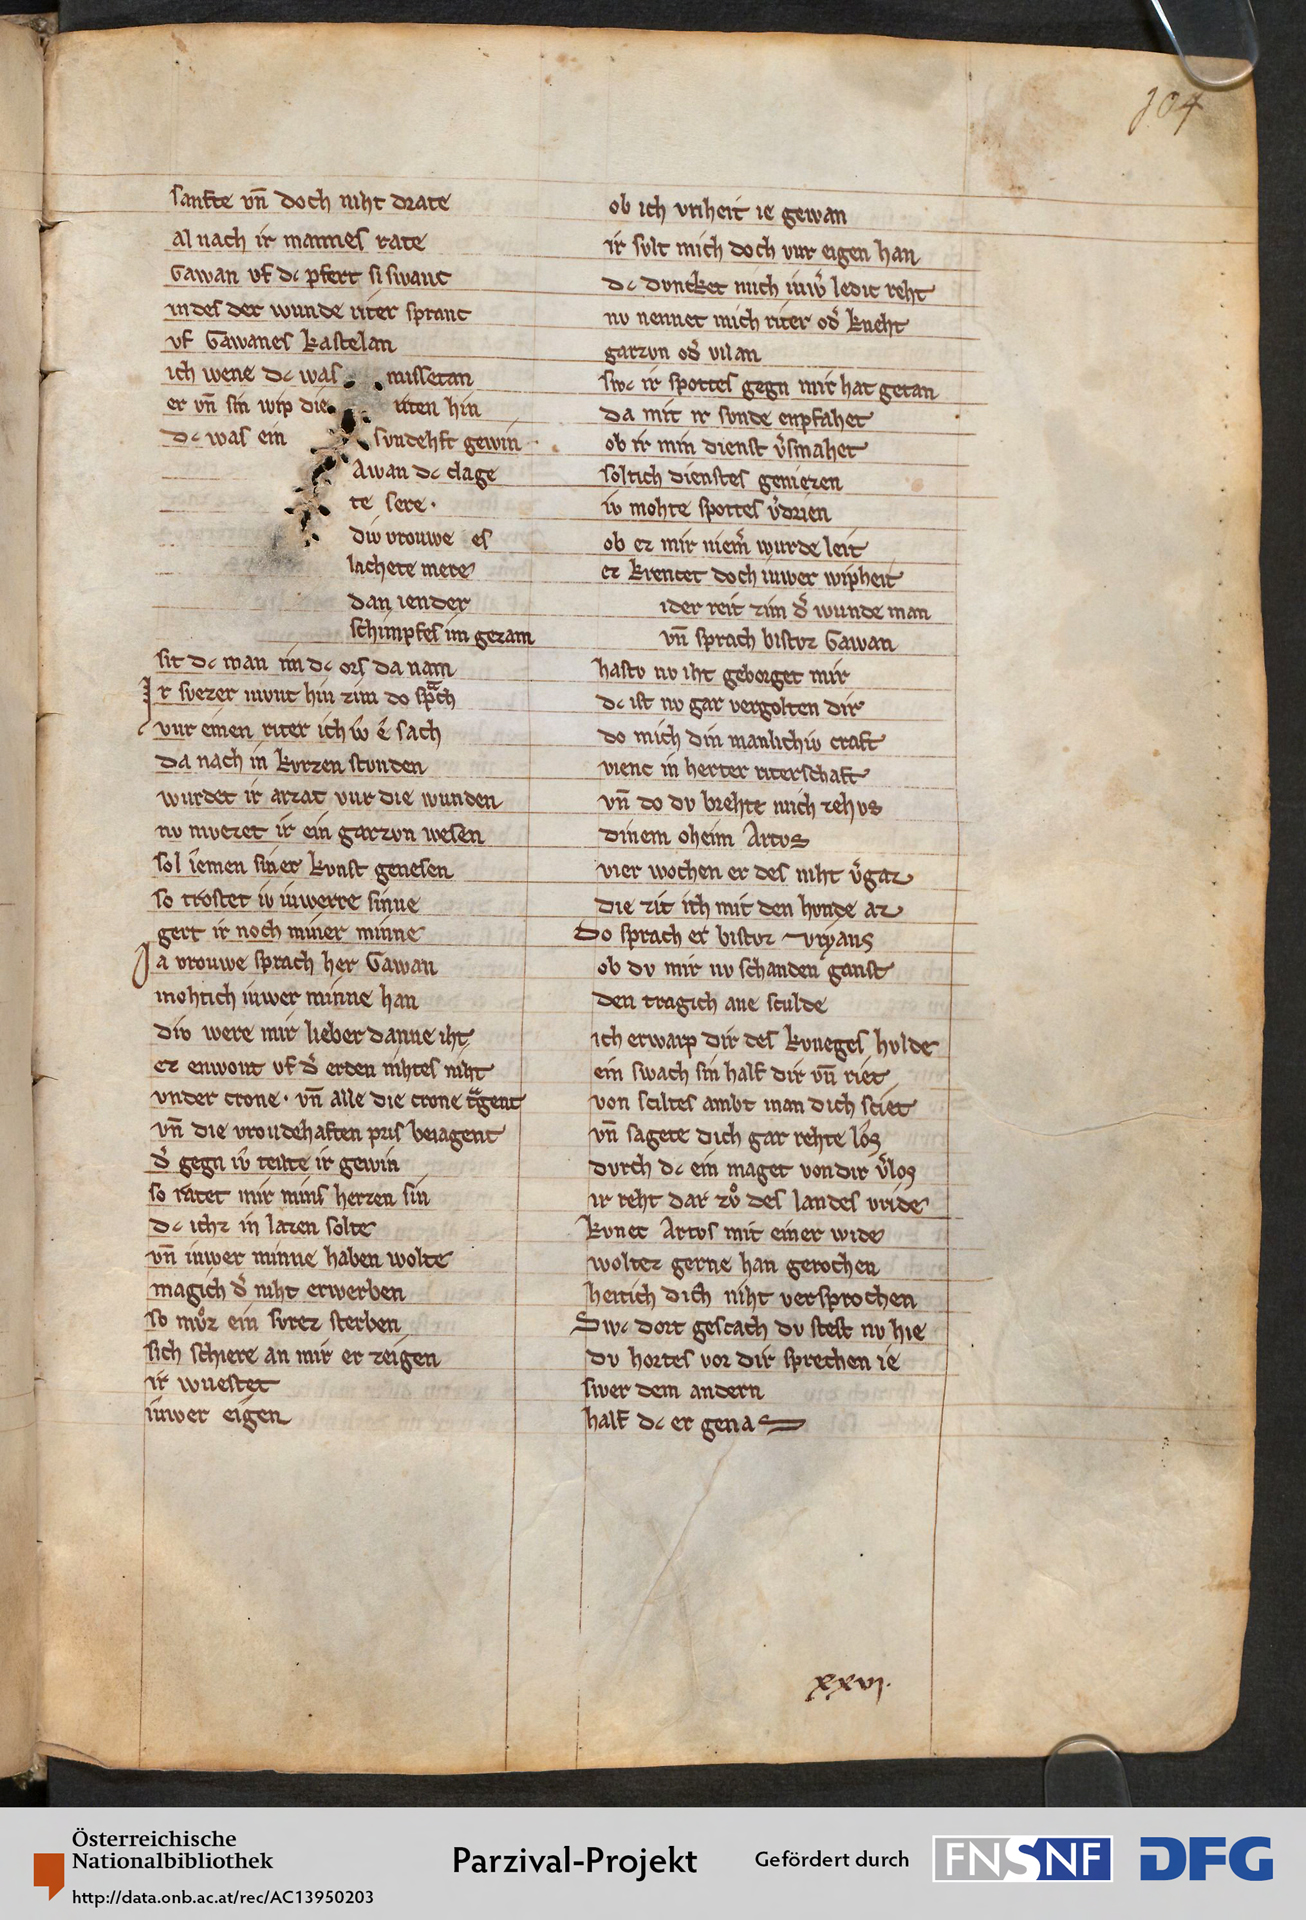 104
sanfte vn̄ doch niht drate
al nach ir mannes rate
Gawan vf dc pfert si swanc
indes der wunde riter spranc
vf Gawanes kastelan
ich wene dc was missetan
er vn̄ sin wip die riten hin
dc was ein sundehft gewin
Awan dc clage
te sere.
div vrouwe es
lachete mere
dan iender
schimpfes im gezam
sit dc man im dc ors da nam
Ir svezer mvnt hin zim do sprach
vur einen riter ich iv̓ e sach
da nach in kvrzen stvnden
wurdet ir arzat vur die wunden
nv mvezet ir ein garzvn wesen
sol iemen siner kvnst genesen
so trostet iv iuwerre sinne
gert ir noch miner minne
Ja vrouwe sprach her Gawan
mohtich iuwer minne han
div were mir lieber danne iht
ez enwont vf d̓ erden nihtes niht
vnder crone. vn̄ alle die crone tragent
vn̄ die vroudehaften pris beiagent
d̓ gegn iv̓ teilte ir gewin
so ratet mir mins herzen sin
dc ichz in lazen solte
vn̄ iuwer minne haben wolte
magich d̓ niht erwerben
so mvͦz ein svrez sterben
sich schiere an mir er zeigen
ir wuestet
iuwer eigen
ob ich vriheit ie gewan
ir svlt mich doch vur eigen han
dc dvncket mich iuw̓ ledic reht
nv nennet mich riter od̓ kneht
garzvn od̓ vilan
swc ir spottes gegn mir hat getan
da mit ir svnde enpfahet
ob ir min dienst v̓smahet
soltich dienstes geniezen
iv mohte spottes v̓drien
ob ez mir niem̓ wurde leit
ez krencet doch iuwer wipheit
ider reit zim d̓ wunde man
vn̄ sprach bistvz Gawan
hastv nv iht geborget mir
dc ist nv gar vergolten dir
do mich din manlichiv craft
vienc in herter riterschaft
vn̄ do dv brehte mich zehvs
dinem oheim Artvs
vier wochen er des niht v̓gaz
die zit ich mit den hvnde az
Do sprach er bistvz vryans
ob dv mir nv schanden ganst
den tragich ane sculde
ich erwarp dir des kvneges hvlde
ein swach sin half dir vn̄ riet
von sciltes ambt man dich sciet
vn̄ sagete dich gar rehte los
dvrch dc ein maget von dir v̓los
ir reht dar zvͦ des landes vride
kvnec Artvs mit einer wide
woltez gerne han gerochen
hetich dich niht versprochen
Swc dort gescach dv stest nv hie
dv hortes vor dir sprechen ie
swer dem andern
half dc er genas
xxvi.
Österreichische
Nationalbibliothek
http://data.onb.ac.at/rec/AC13950203
Parzival-Projekt
Gefördert durch
FNSNF
DFG